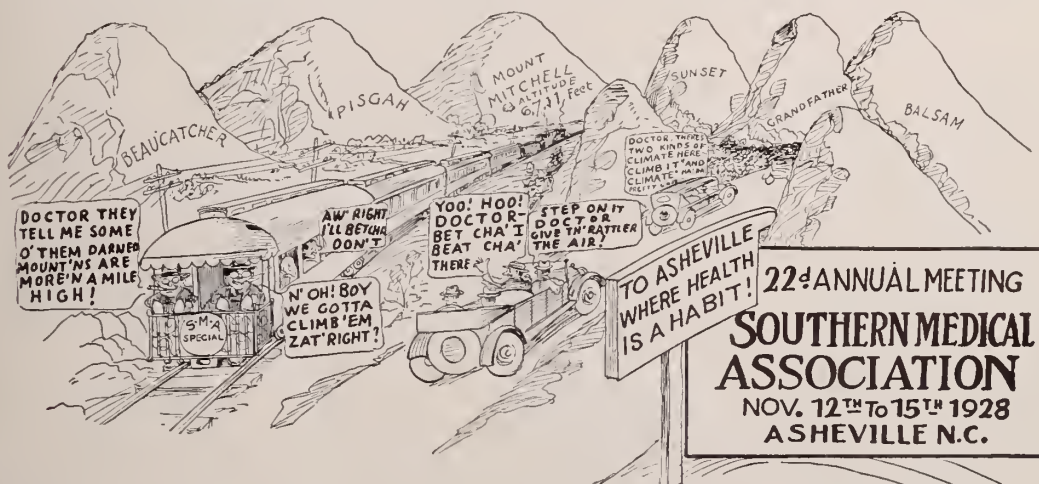 BEAUCATCHER
PISGAH
MOUNT
MITCHELL
ALTITUDE
6,711 Feet
SUNSET
GRANDFATHER
BALSAM
DOCTOR THEY
TELL ME SOME
O' THEM DARNED
MOUNT'NS ARE
MORE'N A MILE
HIGH!
AW' RIGHT
I'LL BETCHA
DON'T
N' OH! BOY
WE GOTTA
CLIMB 'EM
ZAT' RIGHT?
S-M-A
SPECIAL
YOO! HOO!
DOCTOR-
BET CHA' I
BEAT CHA'
THERE
STEP ON IT
DOCTOR
GIVE TH' RATTLER
THE AIR!
DOCTOR, THERES
TWO KINDS OF
CLIMATE HERE
CLIMB IT" AND
CLIMATE"
TO ASHEVILLE
WHERE HEALTH
IS A HABIT!
22d ANNUAL MEETING
SOUTHERN MEDICAL
ASSOCIATION
NOV. 12TH TO 15TH 1928
ASHEVILLE N.C.